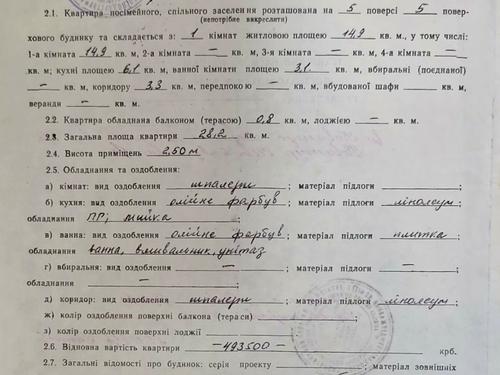 2.1. Квартира посімейного, спільного заселення розташована на 5 поверсі 5 повер-
(непотрібне викреслити)
хового будинку та складається з: 1 кімнат житловою площею 14,9 кв. м., у тому числі:
1-а кімната 14,9 кв. м, 2-а кімната — кв. м, 3-я кімната — кв. м, 4-а кімната —
кв. м; кухні площею 6,1 кв. м, ванної кімнати площею 3,1 кв. м, вбиральні (поєднаної)
— кв. м, коридору 3,3 кв. м, передпокою — кв. м, вбудованої шафи — кв. м,
веранди — кв. м.
2.2. Квартира обладнана балконом (терасою) 0,8 кв. м, лоджією — кв. м.
2.3. Загальна площа квартири 28,2 кв. м.
2.4. Висота приміщень 2,50 м
2.5. Обладнання та оздоблення:
а) кімнат: вид оздоблення шпалери; матеріал підлоги ;
б) кухня: вид оздоблення олійне фарбув; матеріал підлоги лінолеум;
обладнання ПГ; мийка ;
в) ванна: вид оздоблення олійне фарбув; матеріал підлоги плитка
обладнання ванна, вмивальник, унітаз
г) вбиральня: вид оздоблення — ; матеріал підлоги — ;
обладнання — ;
д) коридор: вид оздоблення шпалери; матеріал підлоги лінолеум;
ж) колір оздоблення поверхні балкона (тераси) ;
з) колір оздоблення поверхні лоджії
2.6. Відновна вартість квартири —493500— крб.
2.7. Загальні відомості про будинок: серія проекту ; матеріал зовнішніх